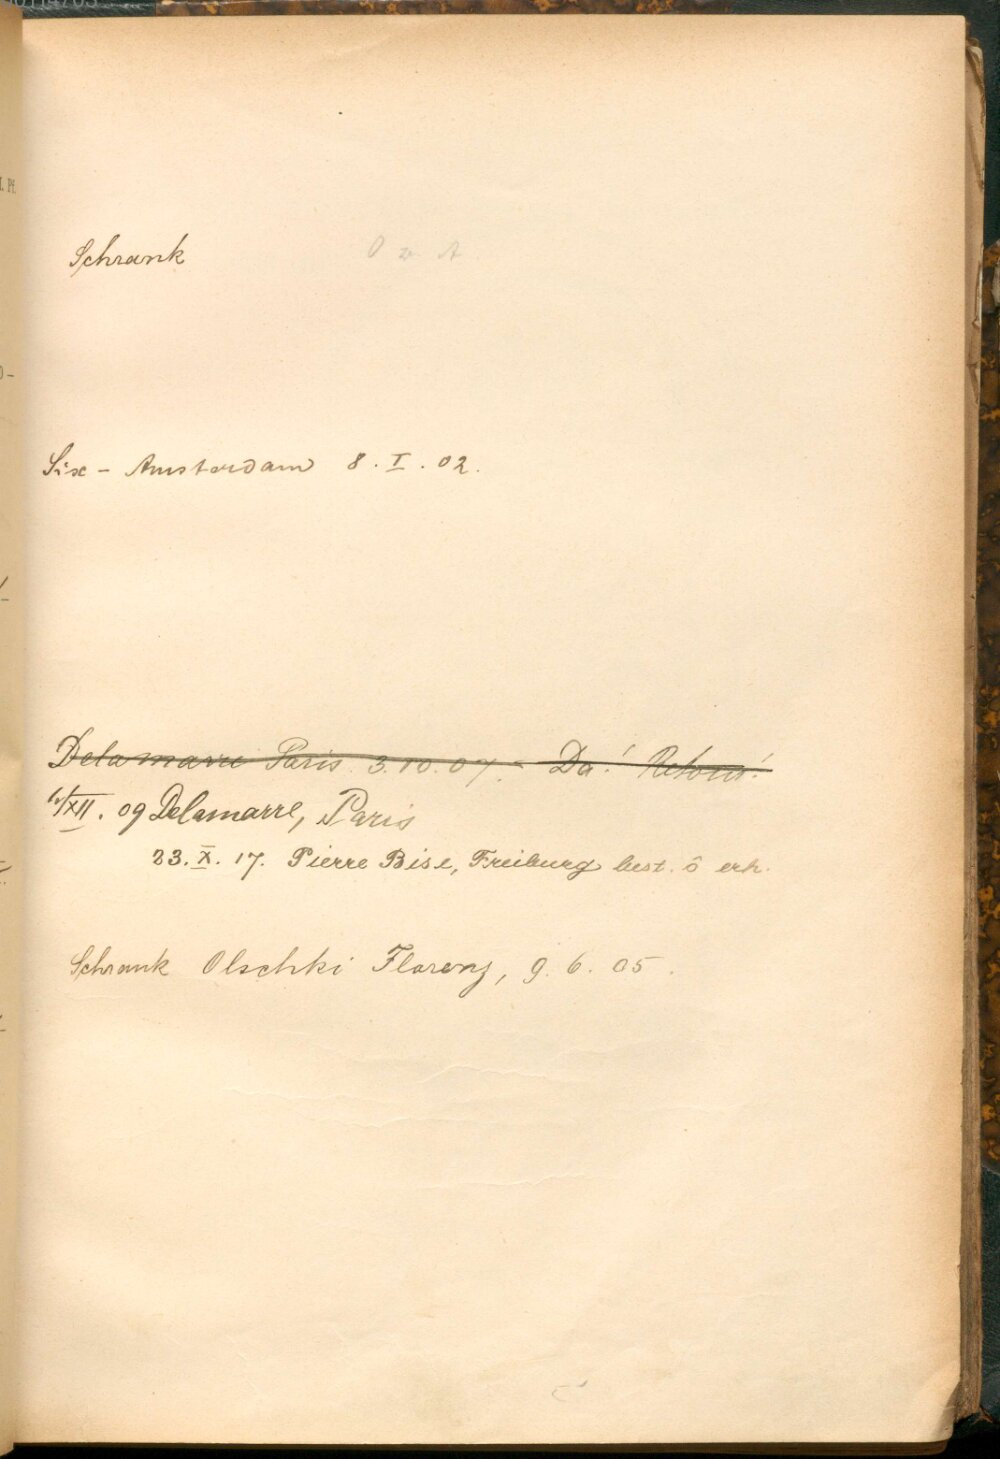 Schrank
Six – Amsterdam 8. I. 02.
Delamarre Paris 3.10.07. – Da! Retour!
/XII. 09 Delamarre, Paris
23. X. 17. Pierre Bise, Freiburg best. ô erh.
Schrank Olschki Florenz, 9. 6. 05.